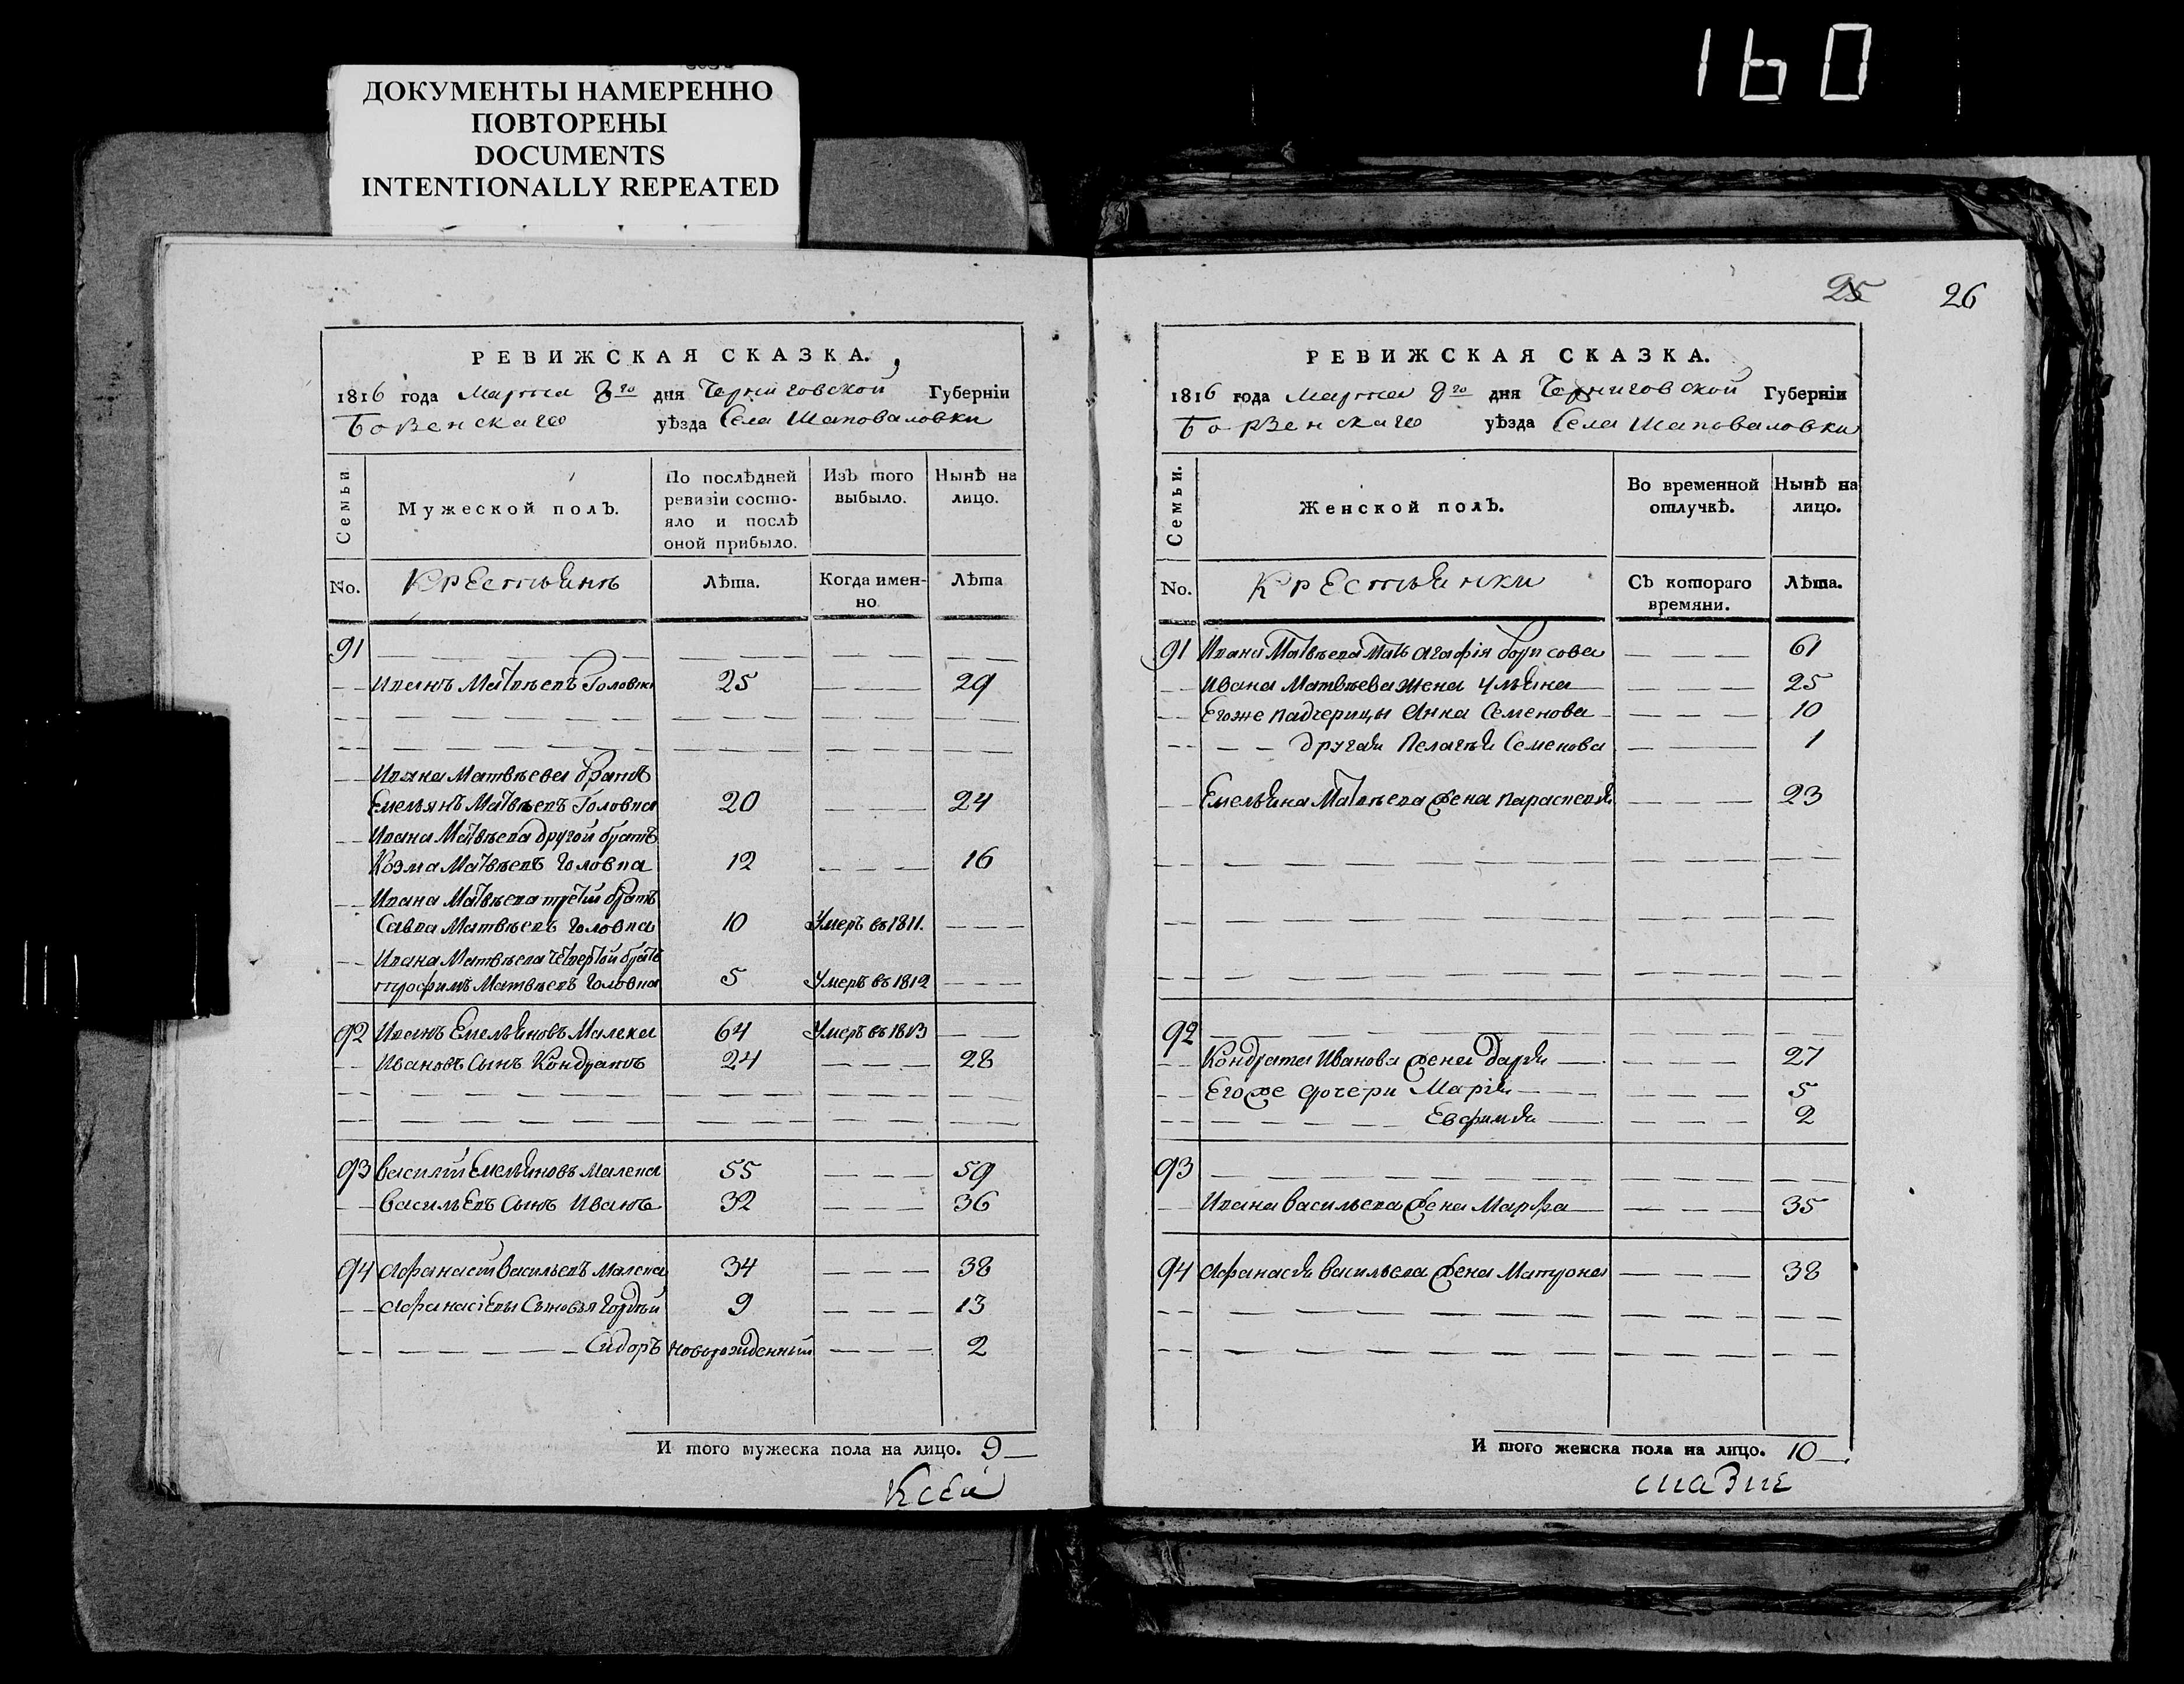 160
ДОКУМЕНТЫ НАМЕРЕННО
ПОВТОРЕНЫ
DOCUMENTS
INTENTIONALLY REPEATED
РЕВИЖСКАЯ СКАЗКА.
1816 года Марта 8го дня Черниговской Губерніи
Бозенскаго уѣзда Села Шаповаловки
Семьи
Мужеской полЪ.
По послѣдней ревизіи состояло и послѣ оной прибыло.
ИзЪ того выбыло.
Нынѣ на лицо.
No. Крестьянъ Лѣта. Когда именно Лѣта
91
Иванъ Матвѣевъ Головка 25 29
Ивана Матвѣева братъ
Емельянъ Матвѣевъ Головка 20 24
Ивана Матвѣева другой братъ
Козма Матвѣевъ Головка 12 16
Ивана Матвѣева третій братъ
Савва Матвѣевъ Головка 10 Умеръ въ 1811.
Ивана Матвѣева четвертой братъ
Трофимъ Матвѣевъ Головка 5 Умеръ въ 1812
92 Иванъ Емельяновъ Малека 64 Умеръ въ 1813
Ивановъ Сынъ Кондратъ 24 28
93 Василий Емельяновъ Малека 55 59
Васильевъ Сынъ Иванъ 32 36
94 Афанасий Васильевъ Малека 34 38
Афанасіевы Сыновья Гордѣй 9 13
Сидоръ новорожденный 2
И того мужеска пола на лицо. 9
Ксей
25 26
РЕВИЖСКАЯ СКАЗКА.
1816 года Марта 8го дня Черниговской Губерніи
Борзенскаго уѣзда Села Шаповаловки
Семьи.
Женской полЪ.
Во временной отлучкѣ.
Нынѣ на лицо.
No. Крестьянки СЪ котораго времяни. Лѣта.
91 Ивана Матвѣева Мать Агафія Борисова 61
Ивана Матвѣева жена Ульяна 25
Егоже падчерицы Анна Семенова 10
другая Пелагѣя Семенова 1
Емельяна Матвѣева жена Парасковья 23
92
Кондрата Иванова жена Дарья 27
Егоже дочери Марія 5
Евфимья 2
93
Ивана Васильева жена Марфа 35
94 Афанасья Васильева жена Матрона 38
И того женска пола на лицо. 10
сказке